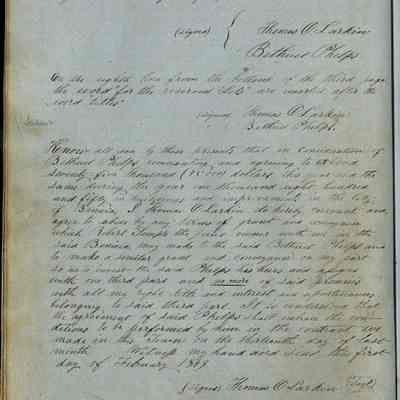 (signed) { Thomas O. Larkin
Bethuel Phelps
On the eighth line from the bottom of the third page
the word for the reversed "Lots" are inserted after the
word titles
(signed) Thomas O. Larkin
Bethuel Phelps.
Know all men by these presents that in consideration of
Bethuel Phelps covenanting and agreeing to expend
seventy five thousand dollars this year and the
same during the year one thousand eight hundred
and fifty in buildings and improvements in the City
of Benicia, I Thomas O. Larkin do hereby covenant and
agree to abide by any terms of grant or conveyance
which Robert Semple the joint owner with me in the
said Benicia may make to the said Bethuel Phelps and
to make a similar grant and conveyance on my part
so as to invest the said Phelps his heirs and assigns
with one third part and no more of said premises
with all my right title and interest and appurtenances
belonging to said third part. It is understood that
the agreement of said Phelps shall release the con-
ditions to be performed by him in the contract
made in this Town on the thirteenth day of last
month. Witness my hand and Seal this first
day of February 1849
(signed) Thomas O. Larkin (Seal)